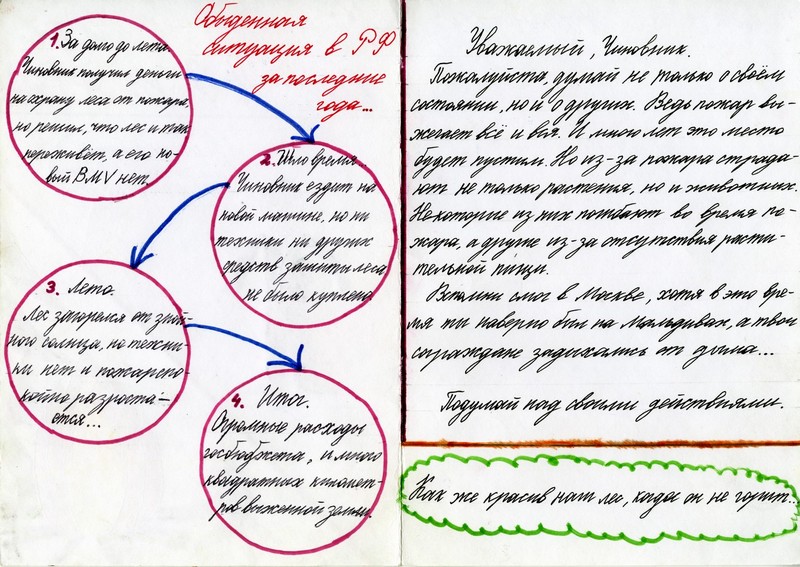 Обыденная
ситуация в РФ
за последние
года...
1. За долго до лета.
Чиновник получил деньги
на охрану леса от пожара,
но решил, что лес и так
переживёт, а его но-
вый BMV нет.
2. Шло время...
Чиновник ездит на
новой машине, но ни
техники ни других
средств защиты леса
не было куплено.
3. Лето.
Лес загорелся от зной-
ного солнца, но техни-
ки нет и пожар спо-
койно разроста-
ется...
4. Итог.
Огромные расходы
госбюджета, и много
квадратных километ-
ров выженной земли.
Уважаемый, Чиновник.
Пожалуйста, думай не только о своём
состоянии, но и о других. Ведь пожар вы-
жегает всё и вся. И много лет это место
будет пустым. Но из-за пожара страда-
ют не только растения, но и животные.
Некоторые из них погибают во время по-
жара, а другие из-за отсутствия расти-
тельной пищи.
Вспомни смог в Москве, хотя в это вре-
мя ты наверно был на Мальдивах, а твои
сограждане задыхались от дыма...
Подумай над своими действиями.
Как же красив наш лес, когда он не горит...